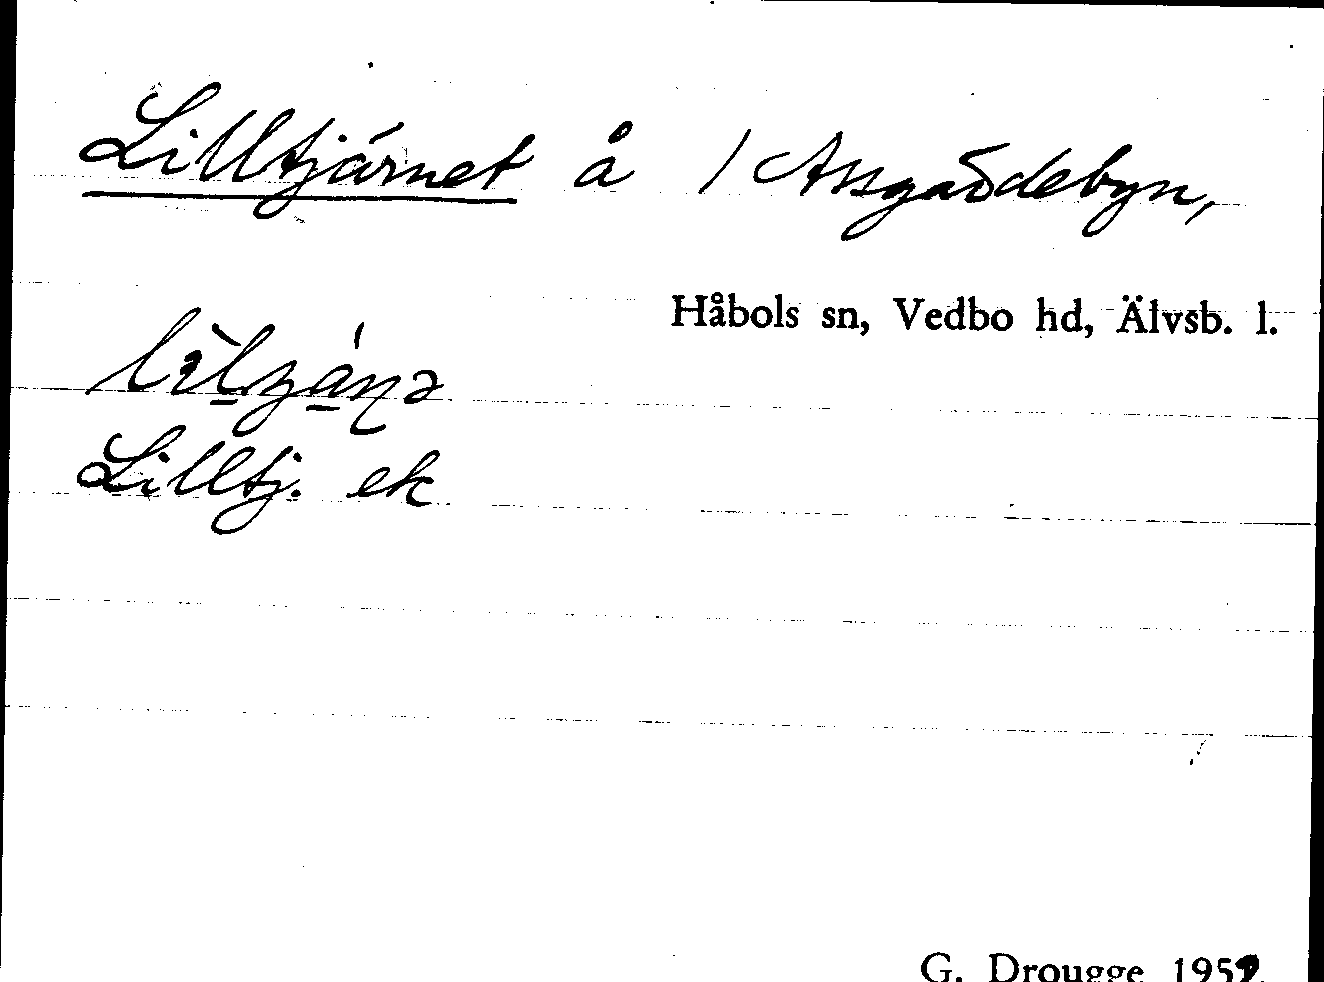 Lilltjärnet å 1 Assgärdebyn,
Håbols sn, Vedbo hd, Älvsb. l.
Lilltj. ek
G. Drougge 1959.